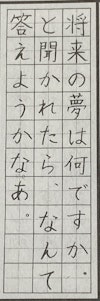 将来の夢は何ですか.
と聞かれたら、なんて
答えようかなあ。